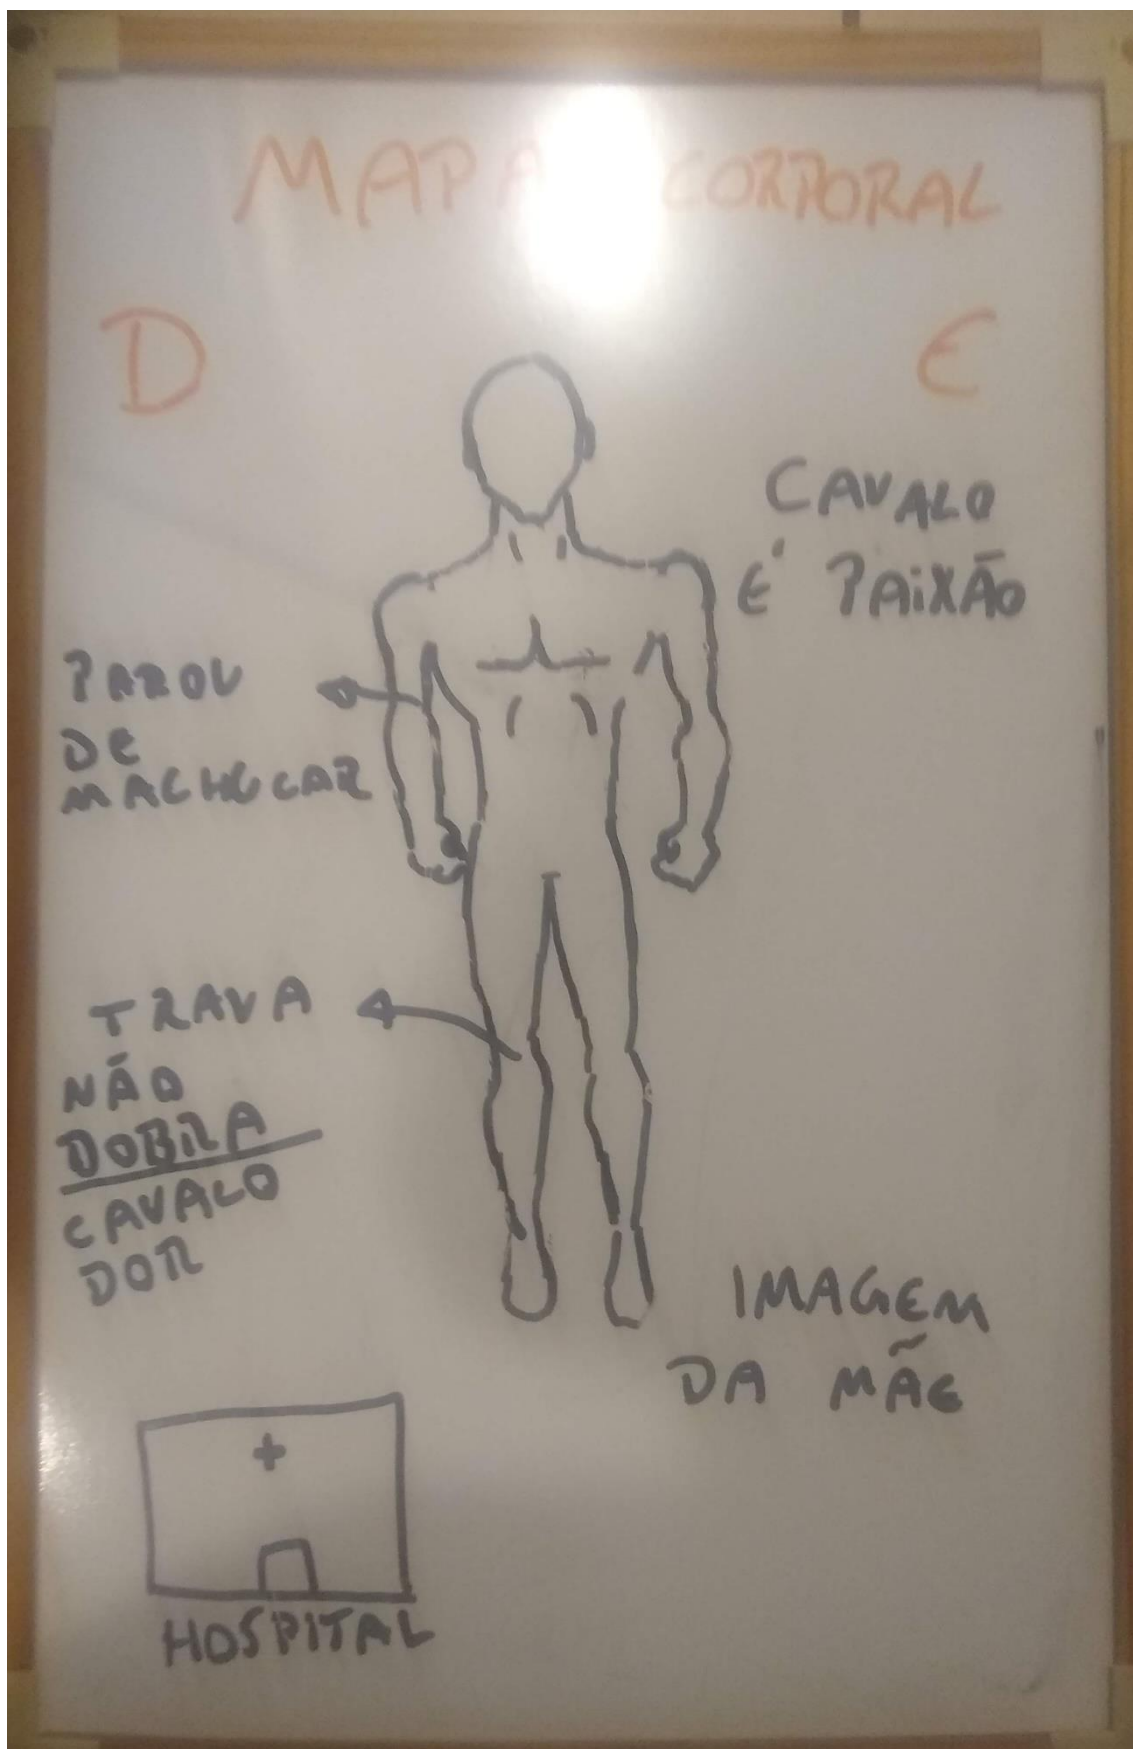 MAPA CORPORAL
D E
CAVALO
É PAIXÃO
PAROU
DE
MACHUCAR
TRAVA
NÃO
DOBRA
CAVALO
DOR
IMAGEM
DA MÃE
HOSPITAL